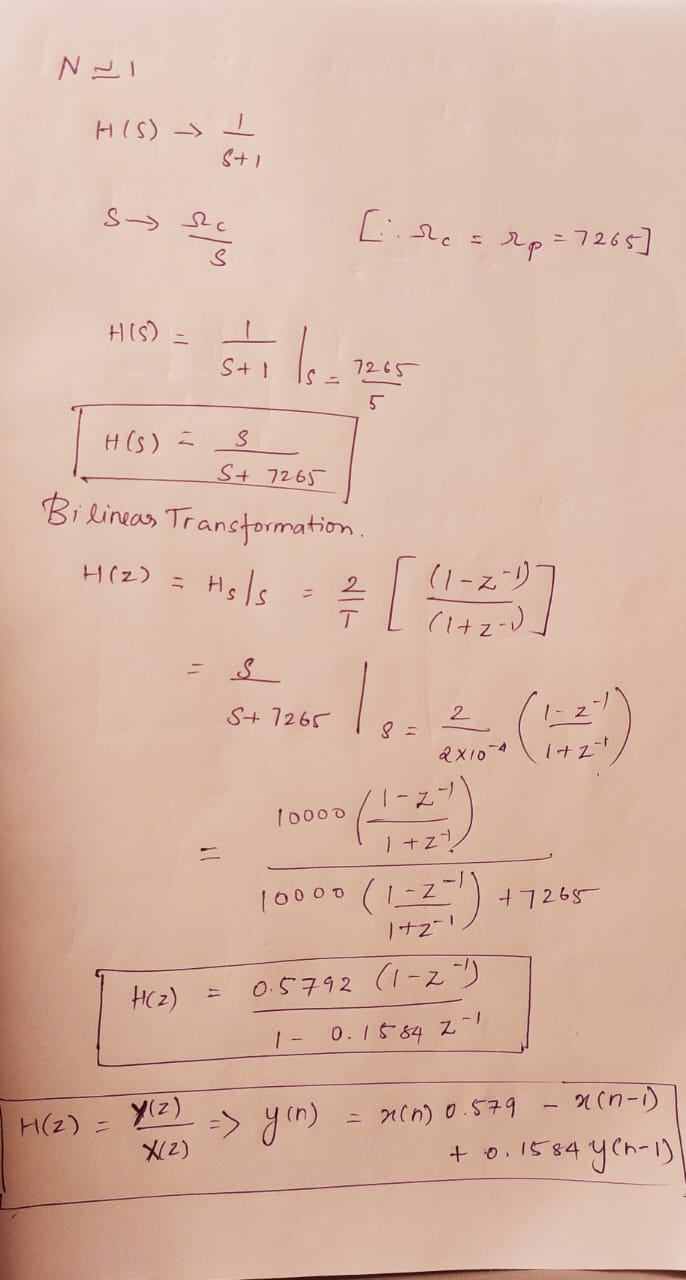 N ≃ 1
H(S) → 1/(S+1)
S → Ωc/S [∵ Ωc = Ωp = 7265]
H(S) = 1/(S+1) | S = 7265/5
H(S) = S/(S+ 7265)
Bilinear Transformation.
H(Z) = Hs|s = 2/T [(1-z⁻¹)/(1+z⁻¹)]
= S/(S+ 7265) | S = 2/(2×10⁻⁴) ((1-z⁻¹)/(1+z⁻¹))
= 10000 ((1-z⁻¹)/(1+z⁻¹)) / 10000 ((1-z⁻¹)/(1+z⁻¹)) + 7265
H(z) = 0.5792 (1-z⁻¹) / 1 - 0.1584 z⁻¹
H(z) = Y(z)/X(z) => y(n) = x(n) 0.579 - x(n-1)
+ 0.1584 y(n-1)